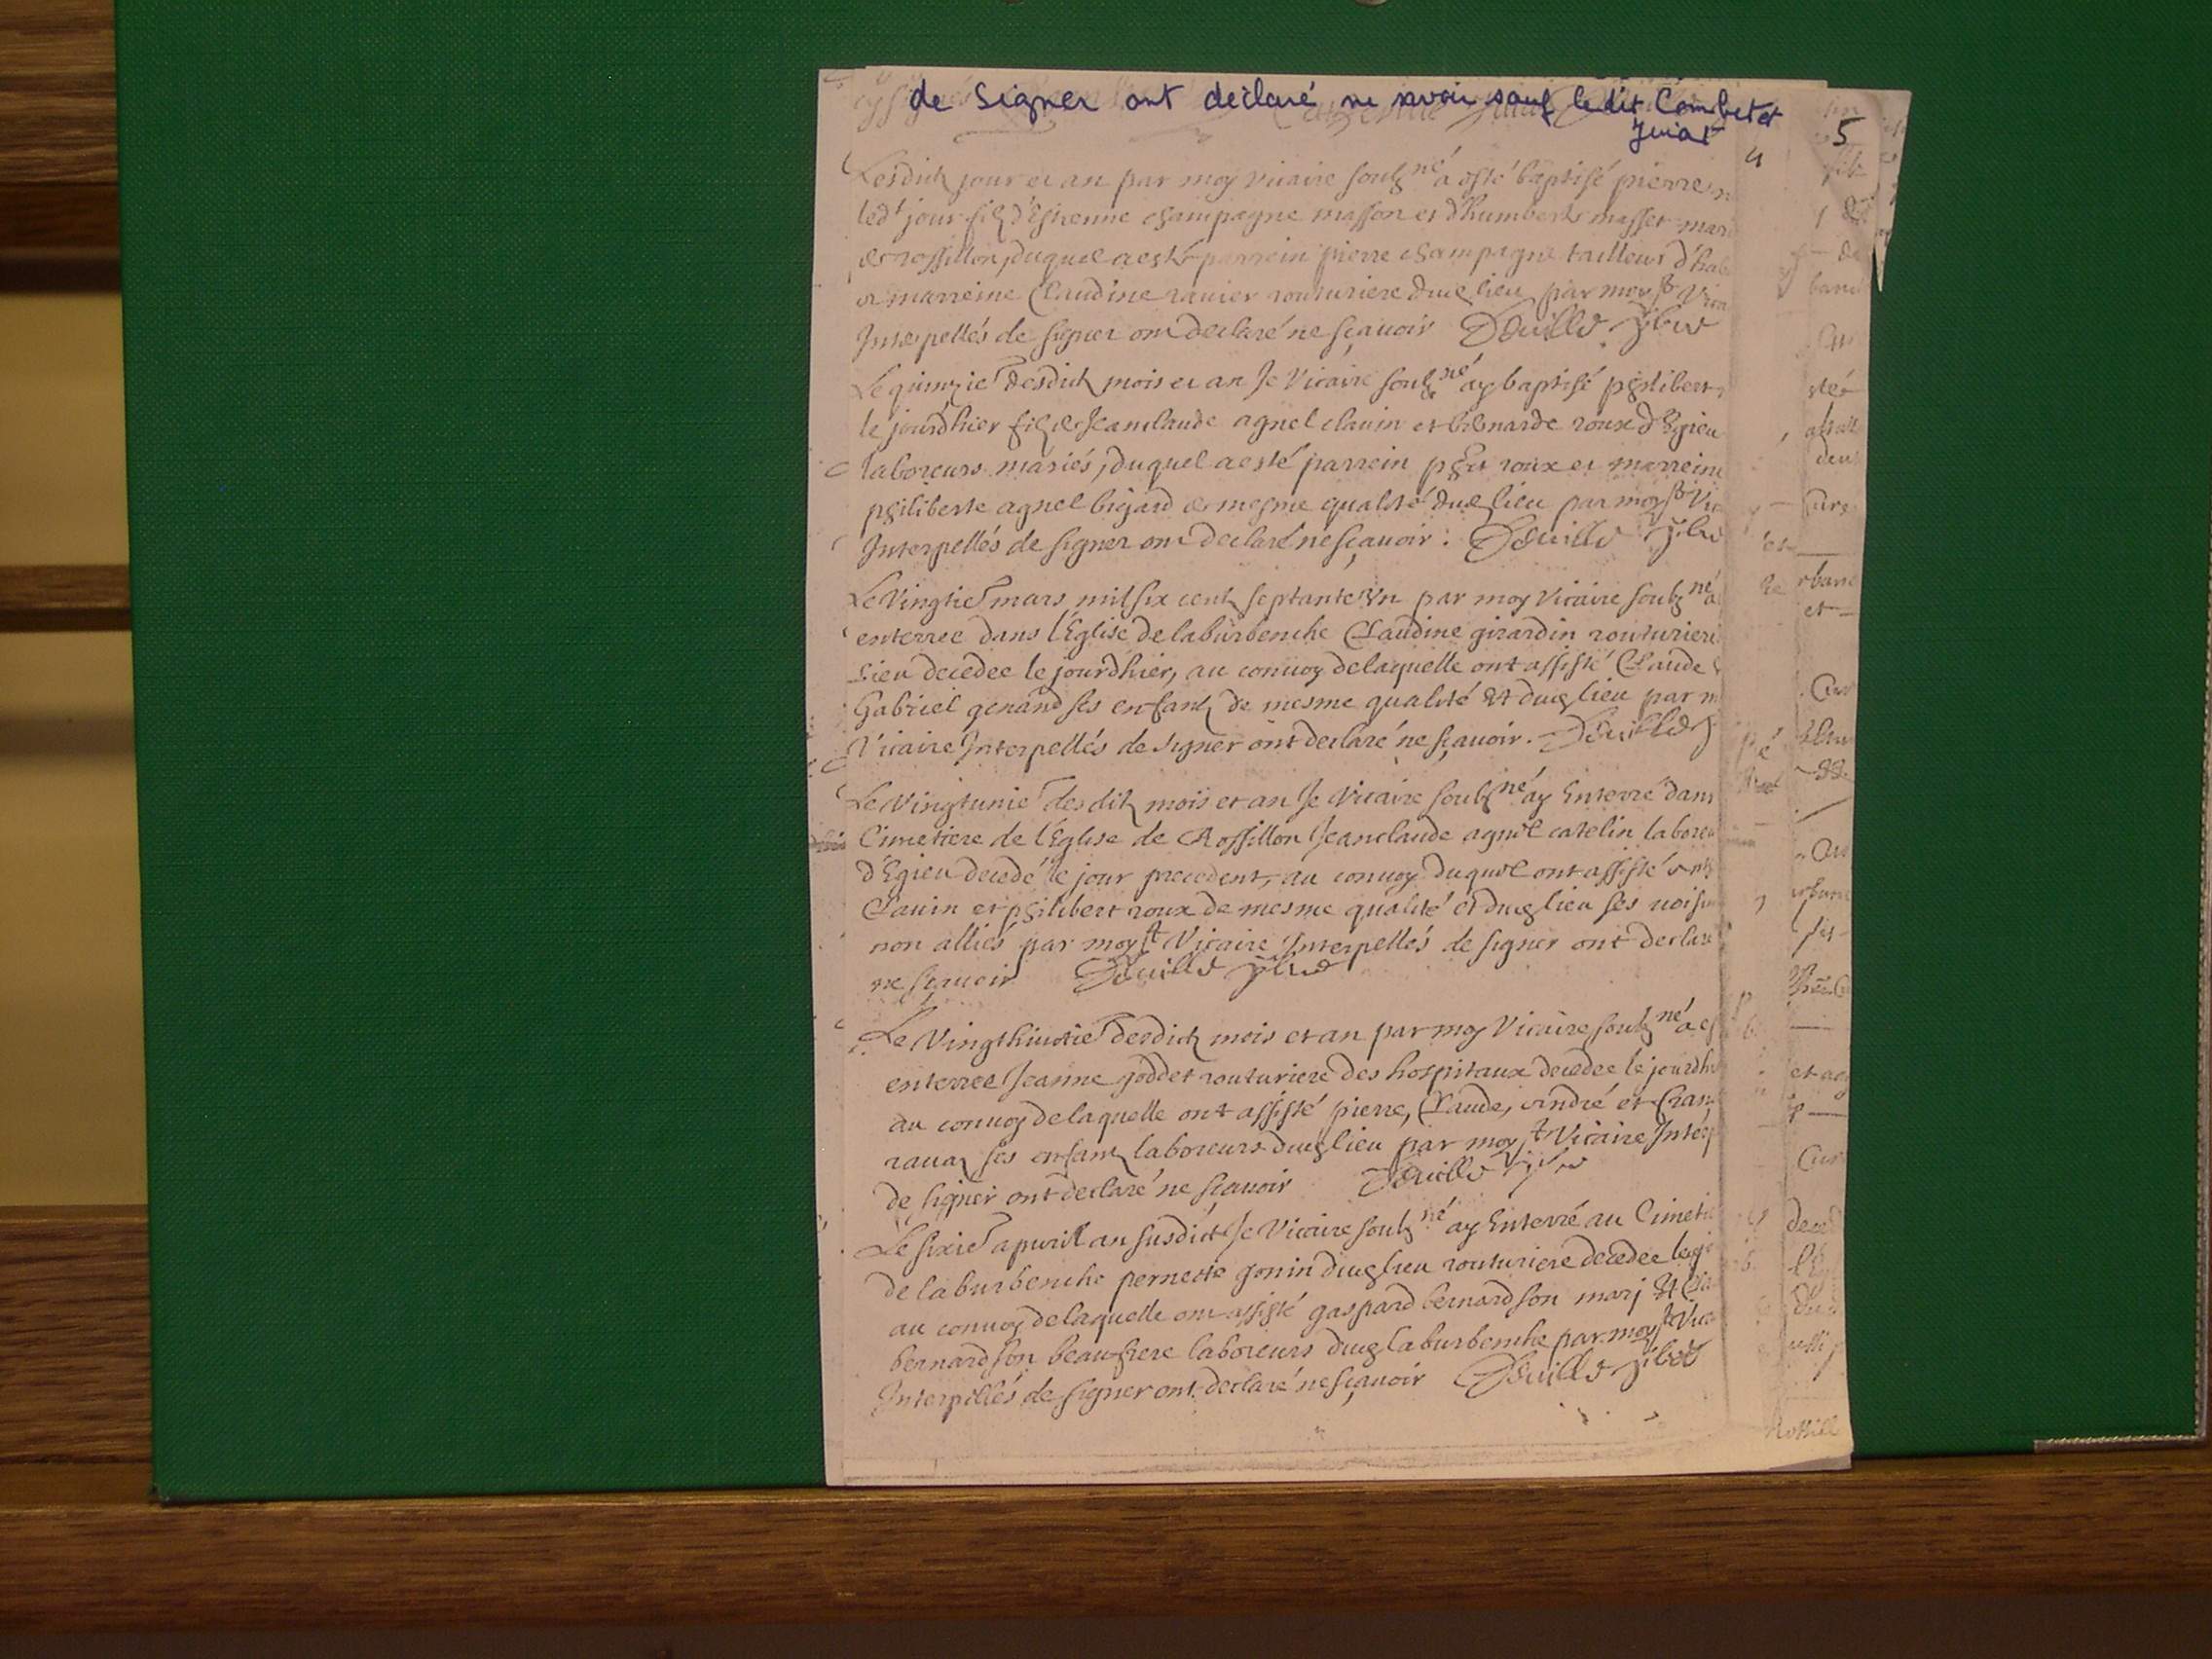 de signer ont déclaré ne savoir sauf le dit Combet et
Juiat
5
Lesdictz jour et an par moy vicaire soubz né a esté baptisé pierre
led t jour filz d'Estienne champagne masson et d'humberte masset
de rossillon, duquel a esté parrein pierre champagne tailleur d'hab
et marreine Claudine ravier routuriere dud lieu par moy st Vica
Interpellés de signer ont declaré ne sçavoir Deville
Le quinzie desdictz mois et an Je Vicaire soubz né ay baptisé philibert
le jourdhier filz de Jeanclaude agnel clavin et bernarde roux d'Egieu
laboreurs mariés, duquel a esté parrein phert roux et marreine
philiberte agnel bigard de mesme qualité dud lieu par moy st Vic
Interpellés de signer ont declaré ne sçavoir : Deville
Le Vingtie mars mil six centz septante Un par moy Vicaire soubz né a
enterree dans l'Eglise de laburbenche Claudine girardin routuriere
lieu decedee le jourdhier, au convoy de laquelle ont assisté Claude
Gabriel genand ses enfantz de mesme qualité Et dud lieu par m
Vicaire Interpellés de signer ont declaré ne sçavoir. Deville
Le Vingtunie des ditz mois et an Je Vicaire soubz né ay Enterré dans
Cimetiere de l'Eglise de Rossillon Jeanclaude agnel catelin laboreu
d'Egieu decedé le jour precedent, au convoy duquel ont assisté
Clavin et philibert roux de mesme qualité et dud lieu ses voisin
non alliés par moy st Vicaire Interpellés de signer ont declaré
ne sçavoir Deville
Le Vingthuictie desdictz mois et an par moy Vicaire soubz né a es
enterree Jeanne goddet routuriere des hospitaux decedee le jourdh
au convoy de laquelle ont assisté pierre, Claude, andré et fran
ravaz ses enfantz laboreurs dud lieu par moy st Vicaire Interp
de signer ont declaré ne sçavoir Deville
Le sixie apvril an susdict Je Vicaire soubz né ay Enterré au Cimeti
de laburbenche pernette gonin dud lieu routuriere decedee le jo
au convoy de laquelle ont assisté gaspard bernard son marj Et Cla
bernard son beaufrere laboreurs dud laburbenche par moy st Vica
Interpellés de signer ont declaré ne sçavoir Deville